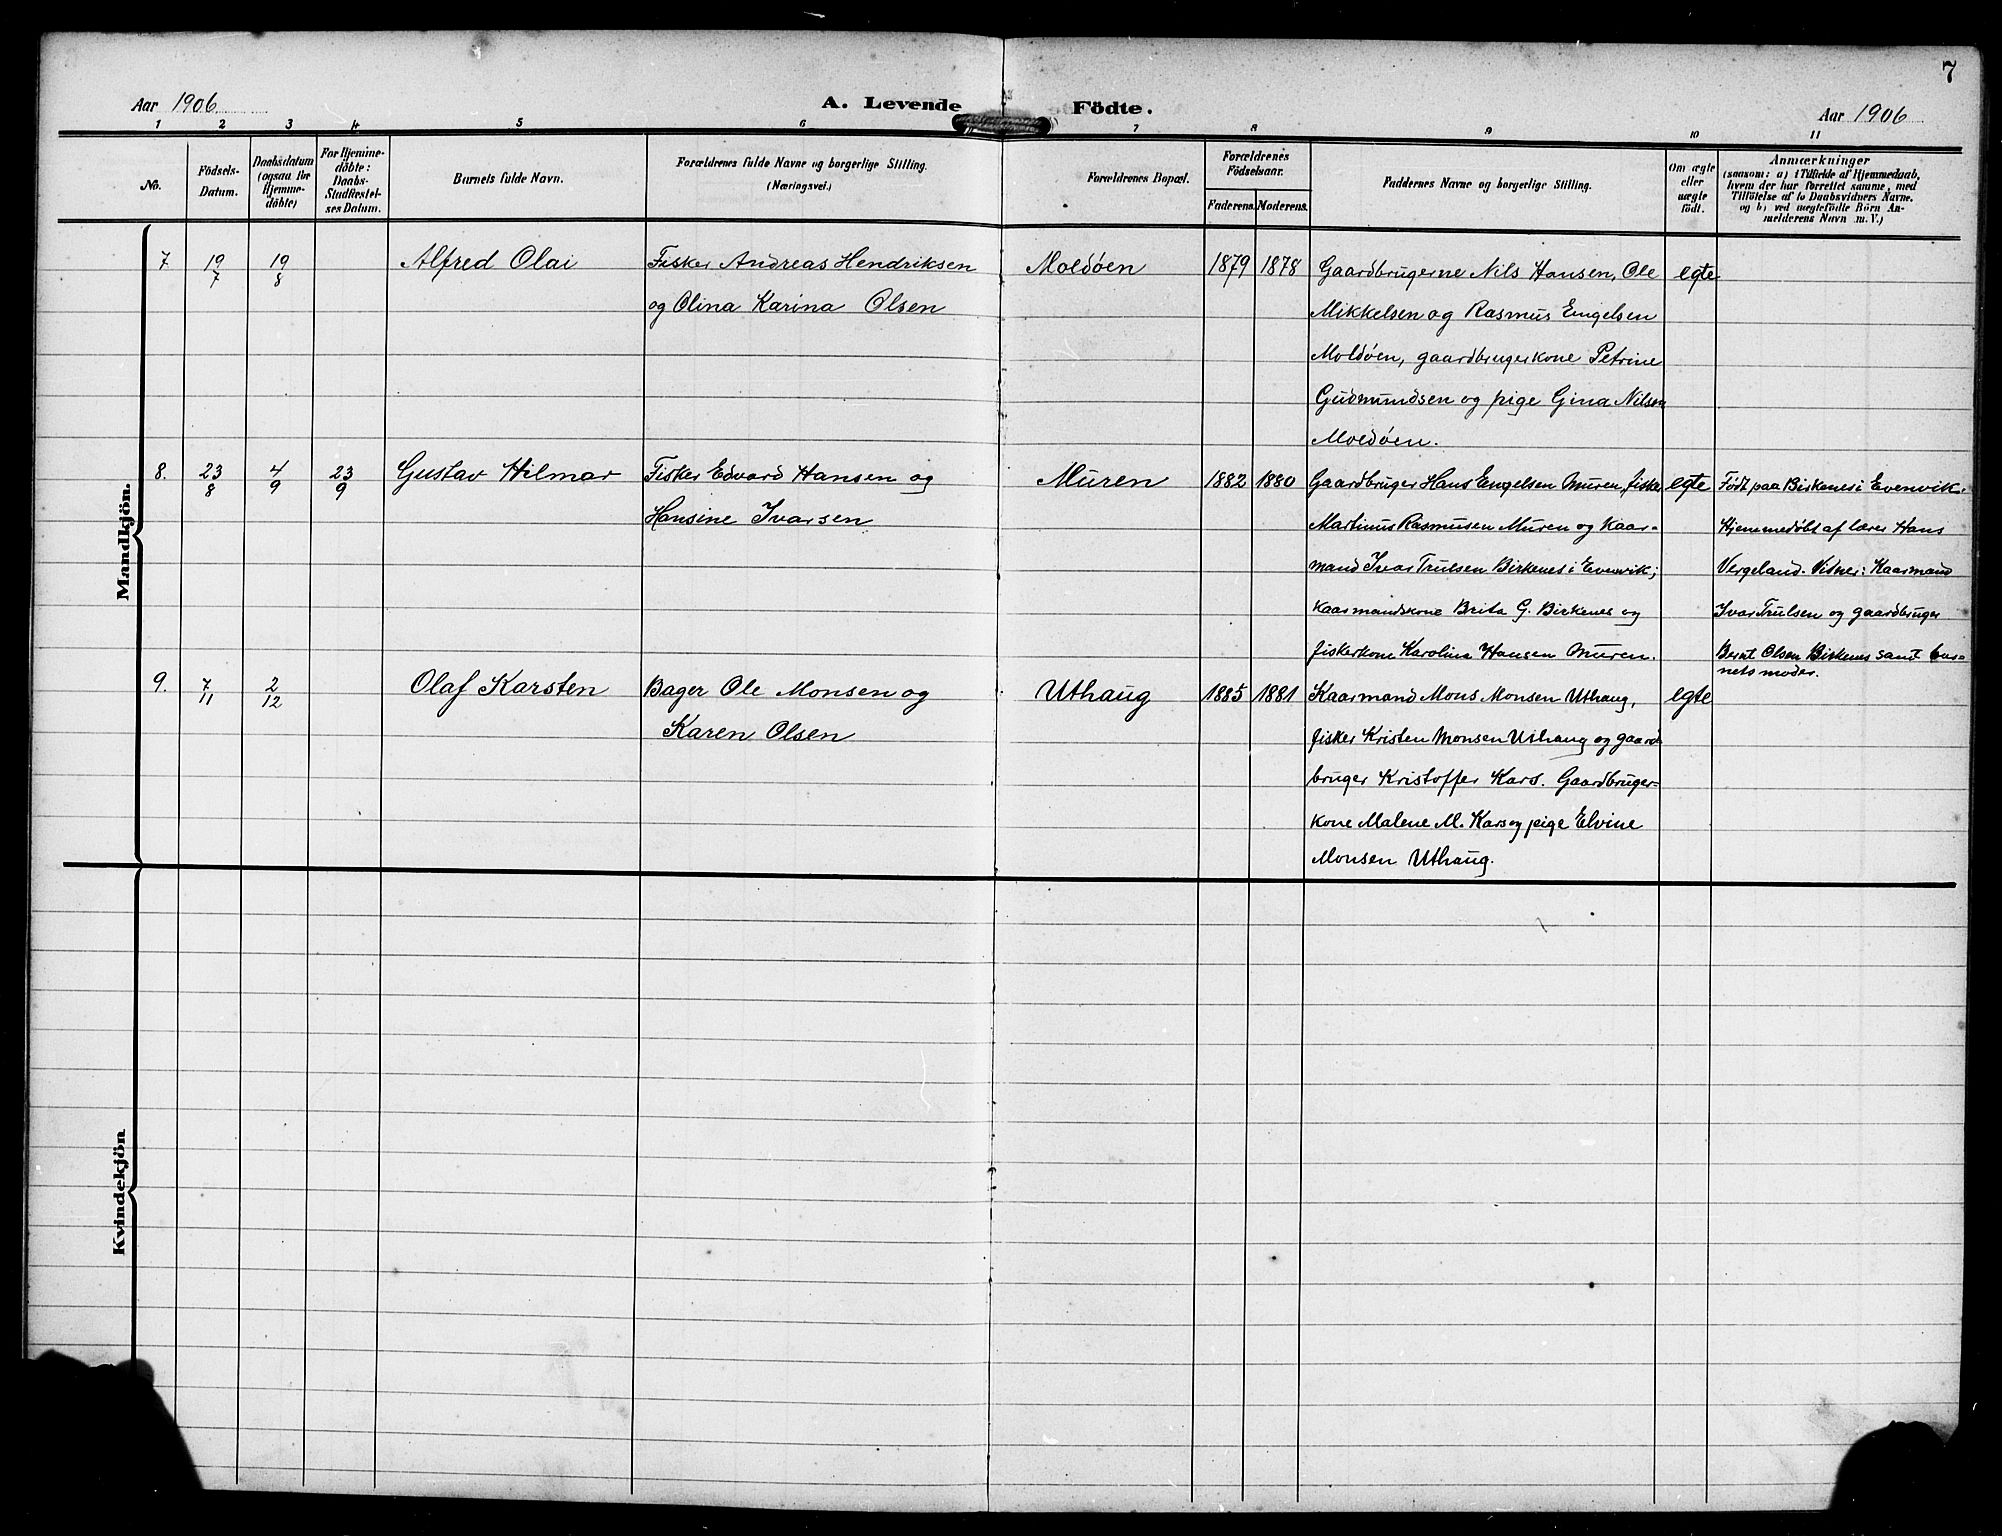 7
Aar 1906
A. Levende Födte.
Aar 1906
1 2 3 4 5 6 7 8 9 10 11
No.
Födsels-
Datum.
Daabsdatum
(ogsaa for
Hjemme-
döbte)
For Hjemme-
döbte:
Daabs-
Stadfæstel-
ses Datum.
Barnets fulde Navn.
Forældrenes fulde Navne og borgerlige Stilling.
(Næringsvei.)
Forældrenes Bopæl.
Forældrenes
Födselsaar.
Faderens. Moderens.
Faddernes Navne og borgerlige Stilling.
Om ægte
eller
uægte
födt.
Anmærkninger
(saasom: a) i Tilfælde af Hjemmedaab,
hvem der har forrettet samme, med
Tilföielse af to Daabsvidners Navne,
og b) ved uægtefödte Börn An-
melderens Navn m. V.)
Mandkjön.
7 19/7 19/8 Alfred Olai
Fisker Andreas Hendriksen
og Olina Karina Olsen
Moldøen 1879 1878
Gaardbrugerne Nils Hansen, Ole
Mikkelsen og Rasmus Engelsen
Moldøen, gaardbrugerkone Petrine
Gudmundsen og pige Gina Nilsen
Moldøen.
egte
8. 23/8 4/9 23/9 Gustav Hilmar
Fisker Edvard Hansen og
Hansine Ivarsen
Muren 1882 1880
Gaardbruger Hans Engelsen Muren, fisker
Martinus Rasmusen Muren og Kaar-
mand Ivar Trulsen Birkenes i Evenvik;
Kaarmandskone Brita G. Birkenes og
fiskerkone Karolina Hansen Muren.
egte
Født paa Birkenes i Evenvik.
Hjemmedøbt af lærer Hans
Vergeland. Vidner: Kaarmand
Ivar Trulsen og gaardbruger
Bernt Olsen Birkenes samt bar-
nets moder.
9. 7/11 2/12 Olaf Karsten
Bager Ole Monsen og
Karen Olsen
Uthaug 1885 1881
Kaarmand Mons Monsen Uthaug,
fisker Kristen Monsen Uthaug og gaard-
bruger Kristoffer Kars. Gaardbruger-
kone Malene M. Kars og pige Elvine
Monsen Uthaug.
egte
Kvindekjön